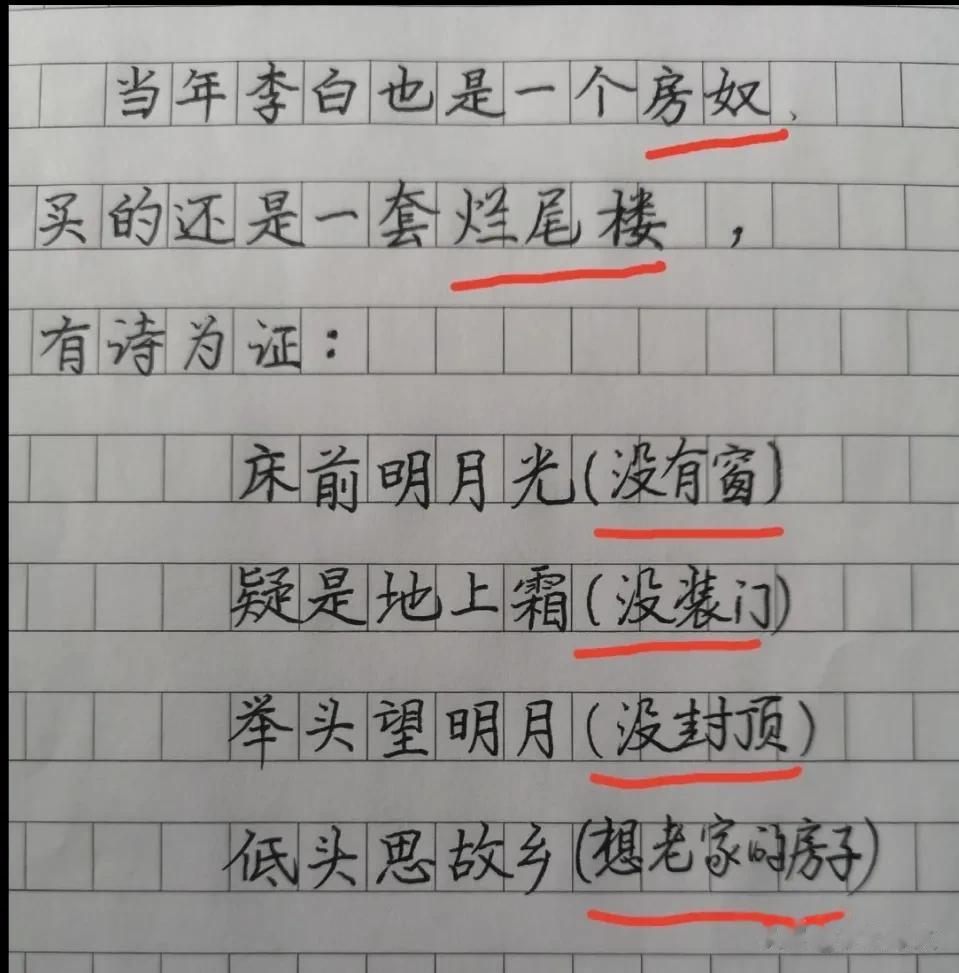 当年李白也是一个房奴、
买的还是一套烂尾楼，
有诗为证：
床前明月光(没有窗)
疑是地上霜(没装门)
举头望明月(没封顶)
低头思故乡(想老家的房子)